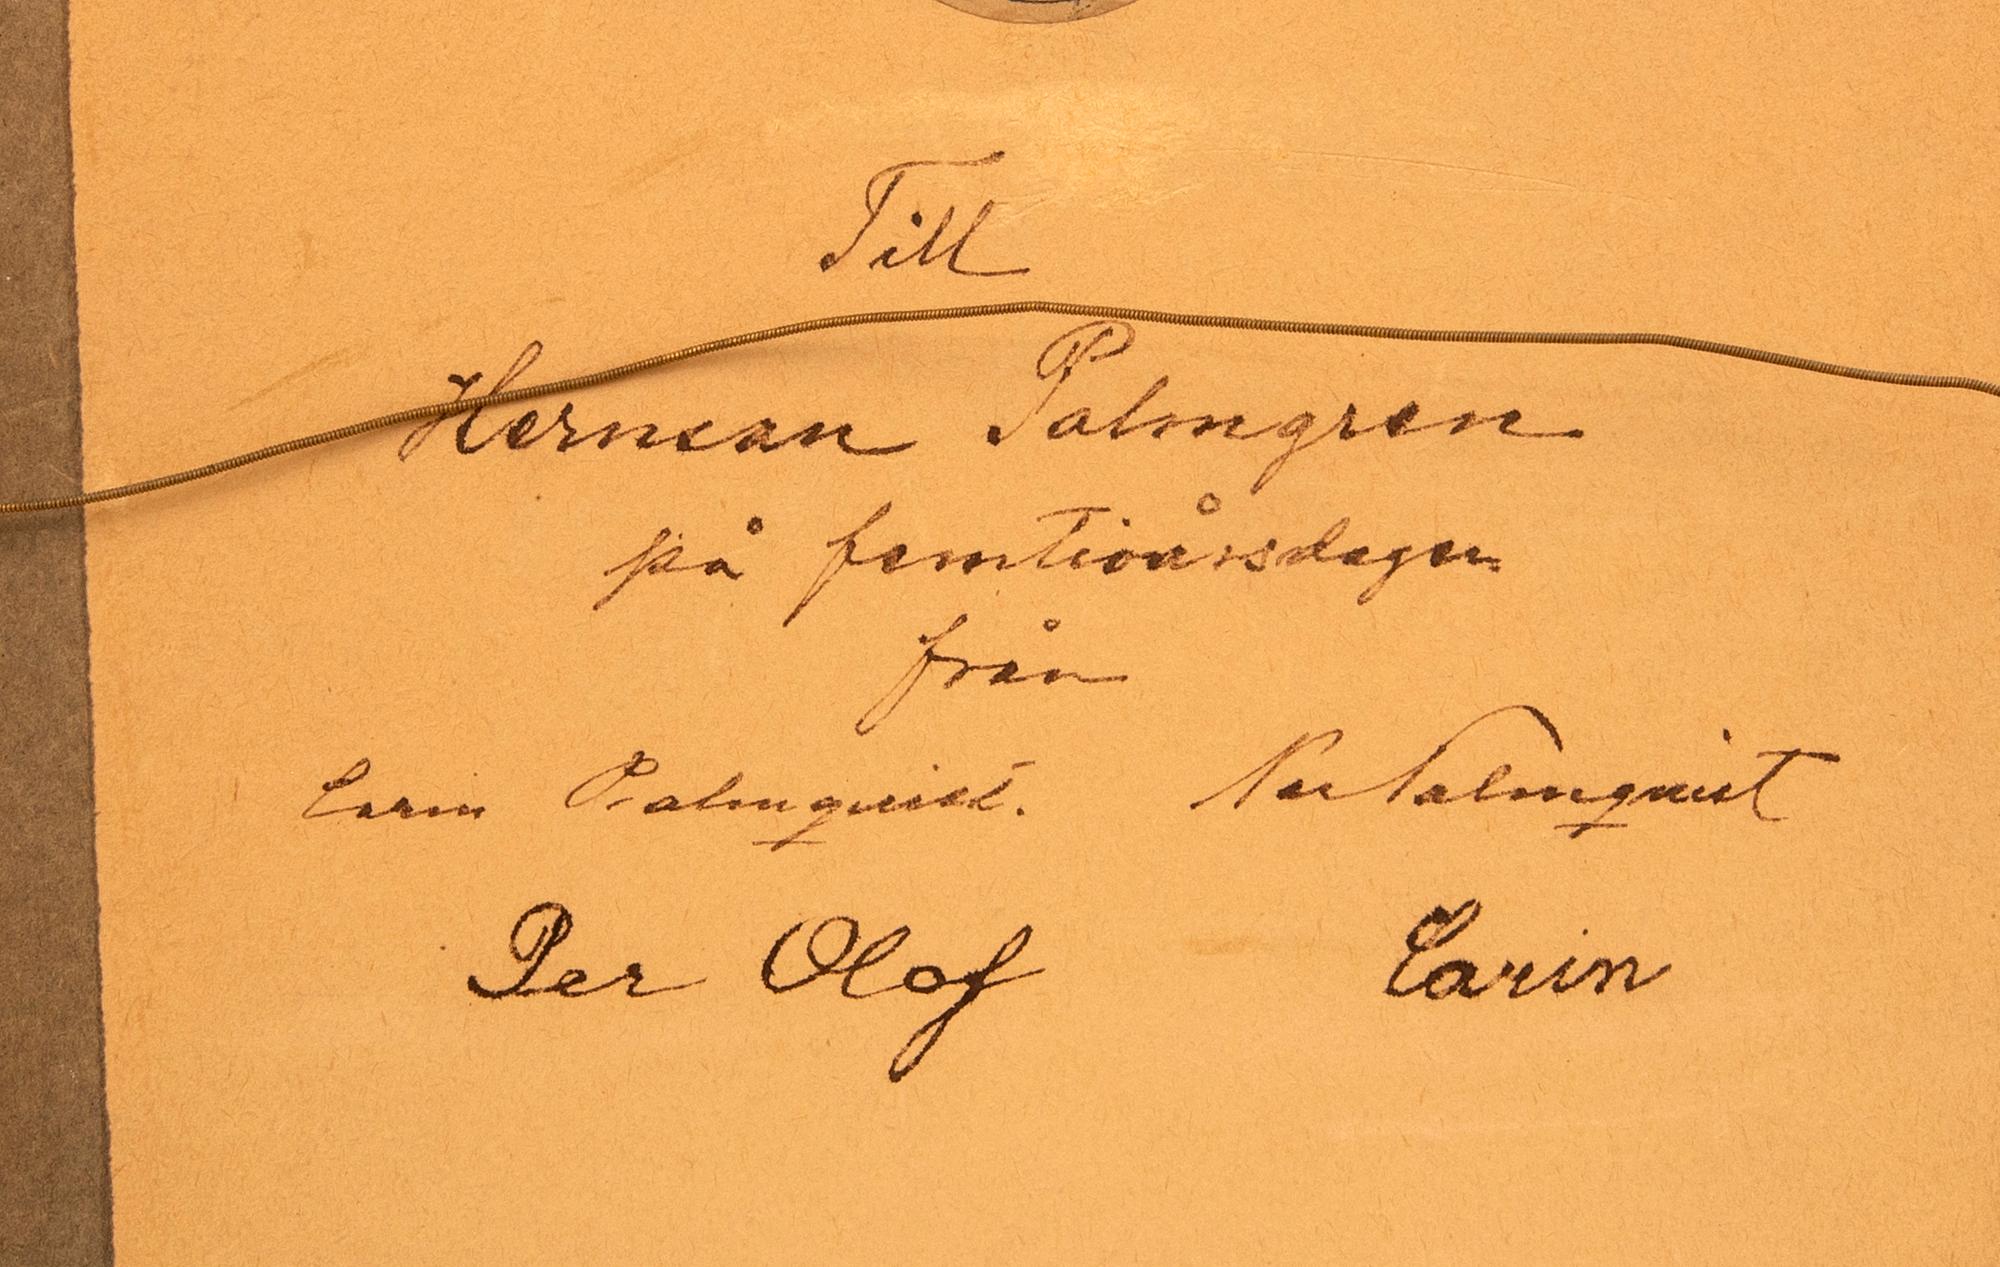 Till
Herman Palmgren
på femtioårsdagen
från
Carin Palmquist. Palmquist
Per Olof Carin